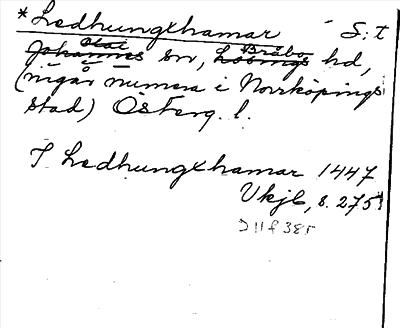 *Ledhungxhamar S:t
Johannes Olai sn, Lösings Bråbo hd,
(ingår numera i Norrköpings
stad) Österg. l.
J Ledhungxhamar 1447
Vkjb, s. 275
D 11 f 385